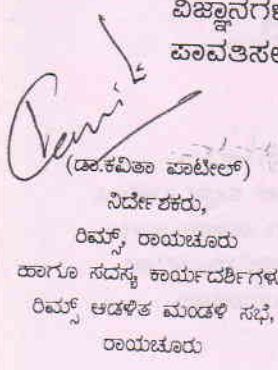 ವಿಜ್ಞಾನಗಳ
ಪಾವತಿಸಲ
(ಡಾ.ಕವಿತಾ ಪಾಟೀಲ್)
ನಿರ್ದೇಶಕರು,
ರಿಮ್ಸ್, ರಾಯಚೂರು
ಹಾಗೂ ಸದಸ್ಯ ಕಾರ್ಯದರ್ಶಿಗಳು
ರಿಮ್ಸ್ ಆಡಳಿತ ಮಂಡಳಿ ಸಭೆ,
ರಾಯಚೂರು